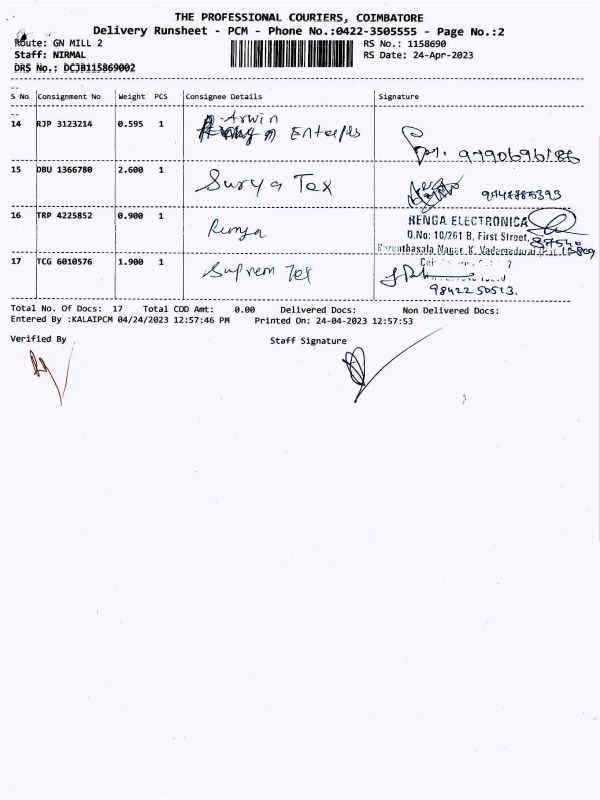 THE PROFESSIONAL COURIERS, COIMBATORE
Delivery Runsheet - PCM - Phone No.:0422-3505555 - Page No.:2
Route: GN MILL 2 RS No.: 1158690
Staff: NIRMAL RS Date: 24-Apr-2023
DRS No.: DCJB115869002
S No Consignment No Weight PCS Consignee Details Signature
14 RJP 3123214 0.595 1 Arwin
Enter/es
9790696186
15 DBU 1366780 2.600 1 Surya Tex
16 TRP 4225852 0.900 1 Renga RENGA ELECTRONICA
D.No: 10/261 B, First Street,
Kurenthasala Nagar, K. Vadamadurai
17 TCG 6010576 1.900 1 Suprem Tex
9842250513.
Total No. Of Docs: 17 Total COD Amt: 0.00 Delivered Docs: Non Delivered Docs:
Entered By :KALAIPCM 04/24/2023 12:57:46 PM Printed On: 24-04-2023 12:57:53
Verified By Staff Signature